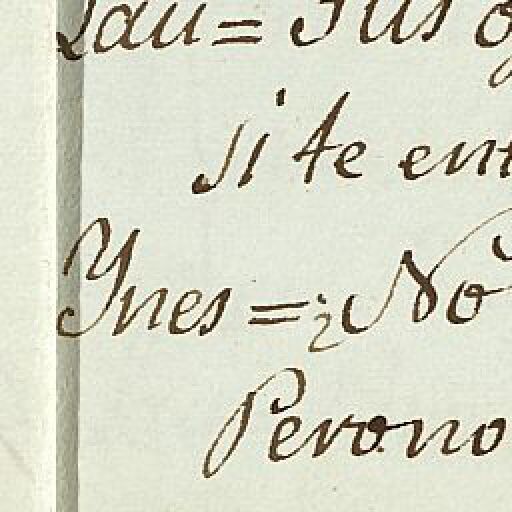 Lau=Tus o
si te ent
Ynes=¿No
Perono